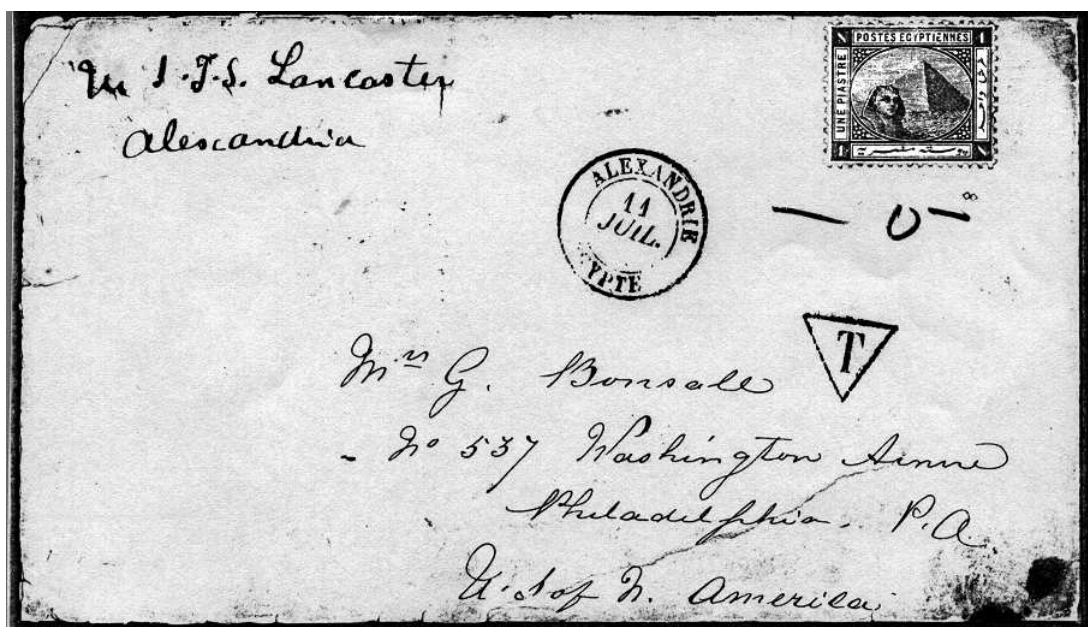 U.S.F.S. Lancaster
Alexandria
POSTES EGYPTIENNES
UNE PIASTRE
1
1
ALEXANDRIE
11
JUIL.
YPTE
T
Mrs G. Bonsall
No 537 Washington
Philadelphia. P.A.
U.S of N. America.